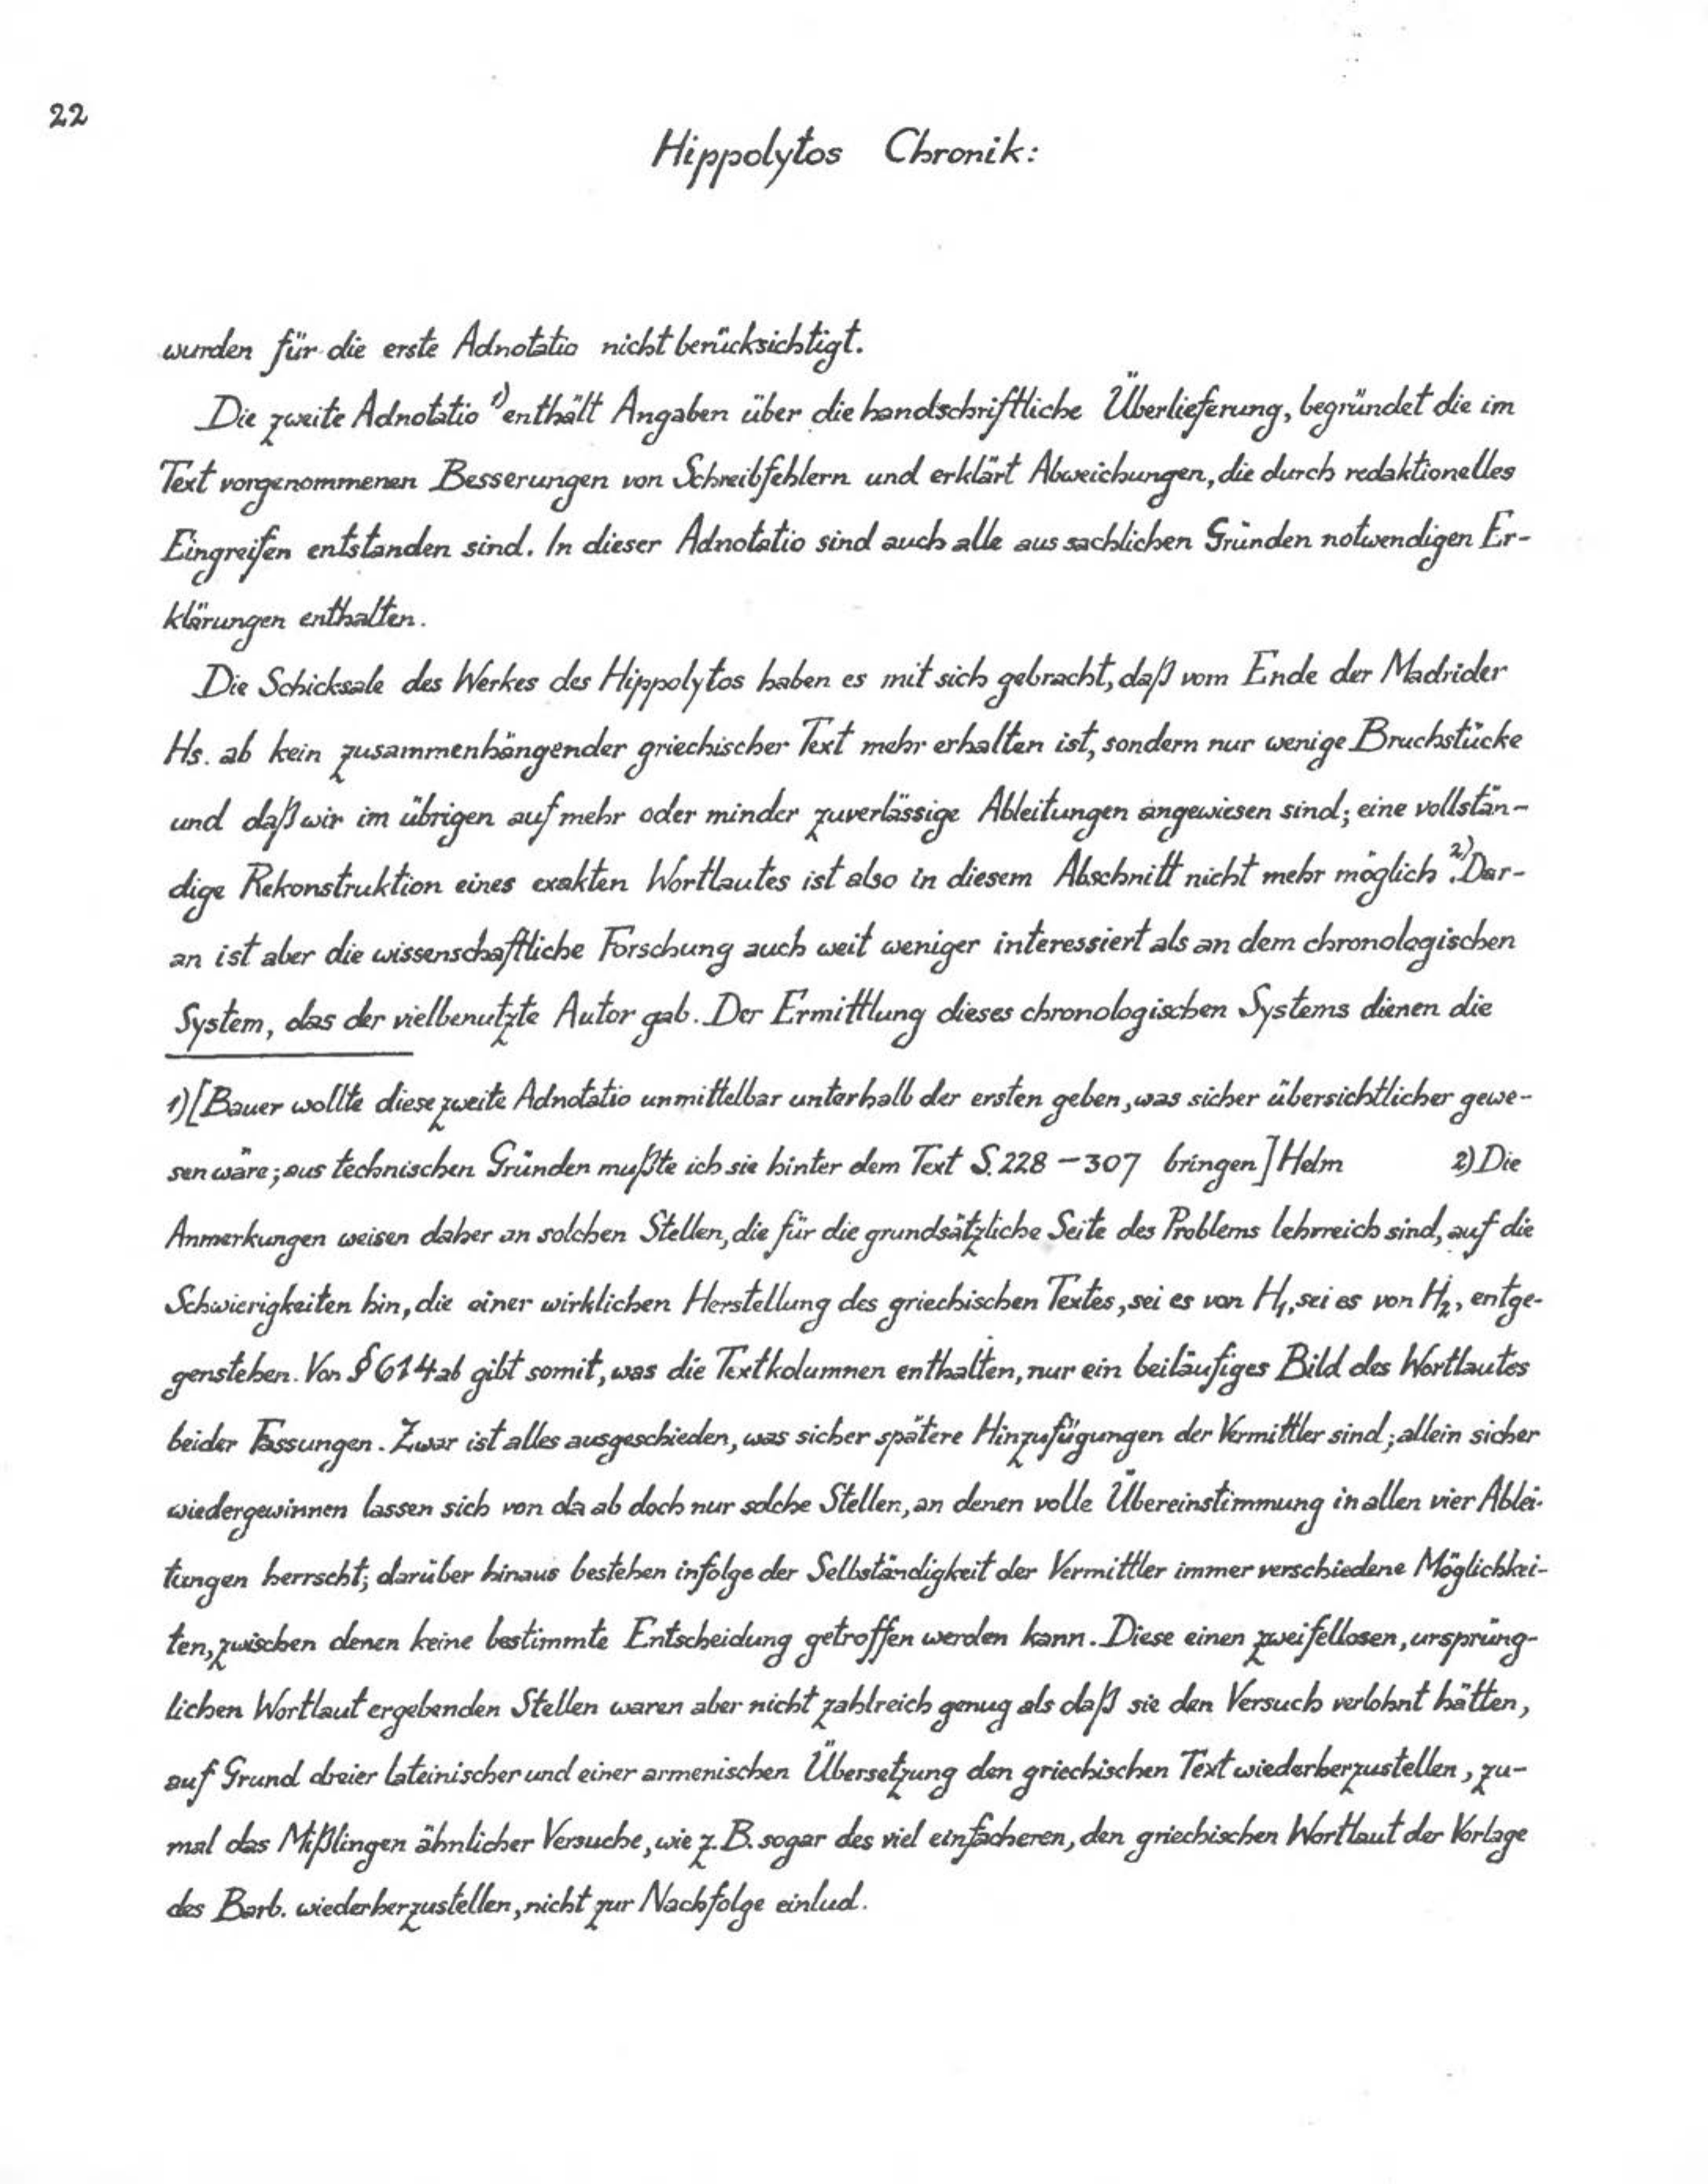 22
Hippolytos Chronik:
wurden für die erste Adnotatio nicht berücksichtigt.
Die zweite Adnotatio 1) enthält Angaben über die handschriftliche Überlieferung, begründet die im
Text vorgenommenen Besserungen von Schreibfehlern und erklärt Abweichungen, die durch redaktionelles
Eingreifen entstanden sind. In dieser Adnotatio sind auch alle aus sachlichen Gründen notwendigen Er-
klärungen enthalten.
Die Schicksale des Werkes des Hippolytos haben es mit sich gebracht, daß vom Ende der Madrider
Hs. ab kein zusammenhängender griechischer Text mehr erhalten ist, sondern nur wenige Bruchstücke
und daß wir im übrigen auf mehr oder minder zuverlässige Ableitungen angewiesen sind; eine vollstän-
dige Rekonstruktion eines exakten Wortlautes ist also in diesem Abschnitt nicht mehr möglich 2). Dar-
an ist aber die wissenschaftliche Forschung auch weit weniger interessiert als an dem chronologischen
System, das der vielbenutzte Autor gab. Der Ermittlung dieses chronologischen Systems dienen die
1) [Bauer wollte diese zweite Adnotatio unmittelbar unterhalb der ersten geben, was sicher übersichtlicher gewe-
sen wäre; aus technischen Gründen mußte ich sie hinter dem Text S. 228 – 307 bringen] Helm 2) Die
Anmerkungen weisen daher an solchen Stellen, die für die grundsätzliche Seite des Problems lehrreich sind, auf die
Schwierigkeiten hin, die einer wirklichen Herstellung des griechischen Textes, sei es von H₁, sei es von H₂, entge-
genstehen. Von § 614 ab gibt somit, was die Textkolumnen enthalten, nur ein beiläufiges Bild des Wortlautes
beider Fassungen. Zwar ist alles ausgeschieden, was sicher spätere Hinzufügungen der Vermittler sind; allein sicher
wiedergewinnen lassen sich von da ab doch nur solche Stellen, an denen volle Übereinstimmung in allen vier Ablei-
tungen herrscht; darüber hinaus bestehen infolge der Selbständigkeit der Vermittler immer verschiedene Möglichkei-
ten, zwischen denen keine bestimmte Entscheidung getroffen werden kann. Diese einen zweifellosen, ursprüng-
lichen Wortlaut ergebenden Stellen waren aber nicht zahlreich genug als daß sie den Versuch verlohnt hätten,
auf Grund dreier lateinischer und einer armenischen Übersetzung den griechischen Text wiederherzustellen, zu-
mal das Mißlingen ähnlicher Versuche, wie z.B. sogar des viel einfacheren, den griechischen Wortlaut der Vorlage
des Barb. wiederherzustellen, nicht zur Nachfolge einlud.